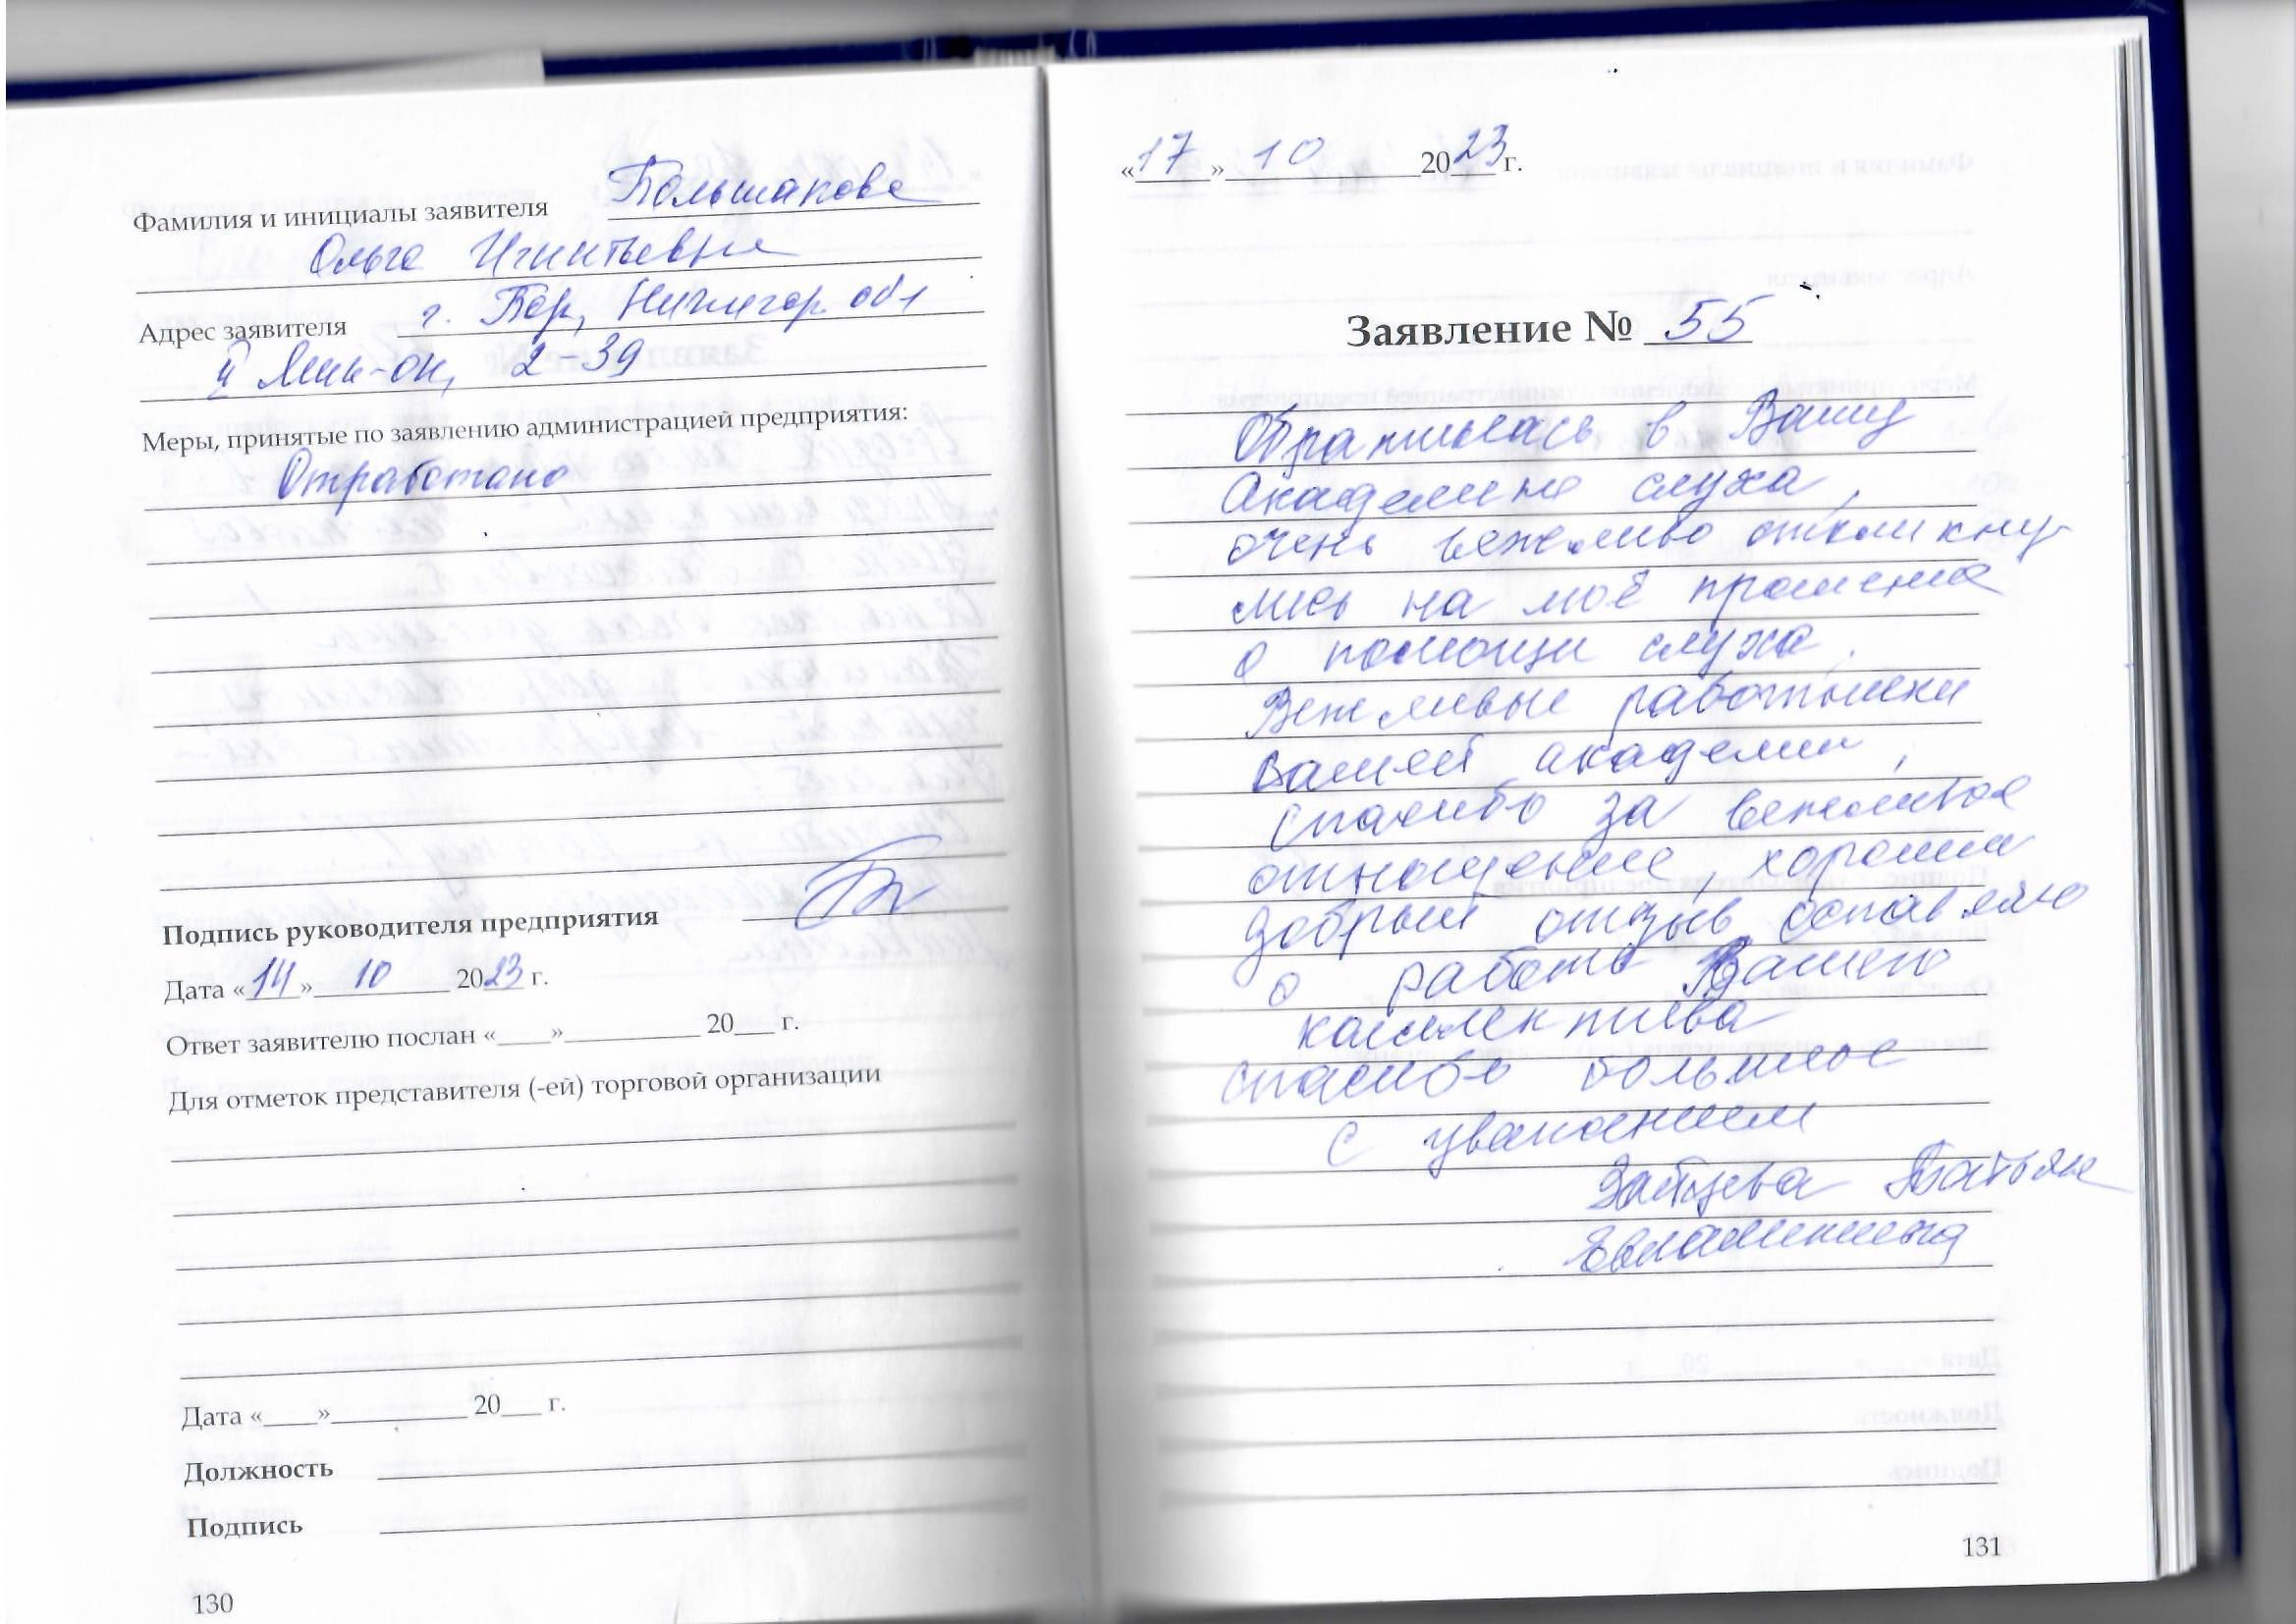 Фамилия и инициалы заявителя Большакова
Ольга Игнатьевна
Адрес заявителя г. Бор, Нижегор. обл
II Мик-он, 2-39
Меры, принятые по заявлению администрацией предприятия:
Отработано
Подпись руководителя предприятия
Дата «14» 10 2023 г.
Ответ заявителю послан «____»__________ 20___ г.
Для отметок представителя (-ей) торговой организации
Дата «____»__________ 20___ г.
Должность
Подпись
130
«17» 10 2023 г.
Заявление № 55
Обратилась в Вашу
Академию слуха,
очень вежливо откликну-
лись на моё прошение
о помощи слуха.
Вежливые работники
вашей академии,
спасибо за вежливое
отношение, хороший
добрый отзыв оставляю
о работе Вашего
коллектива
спасибо большое
с уважением
Зайцева Татьяна
131